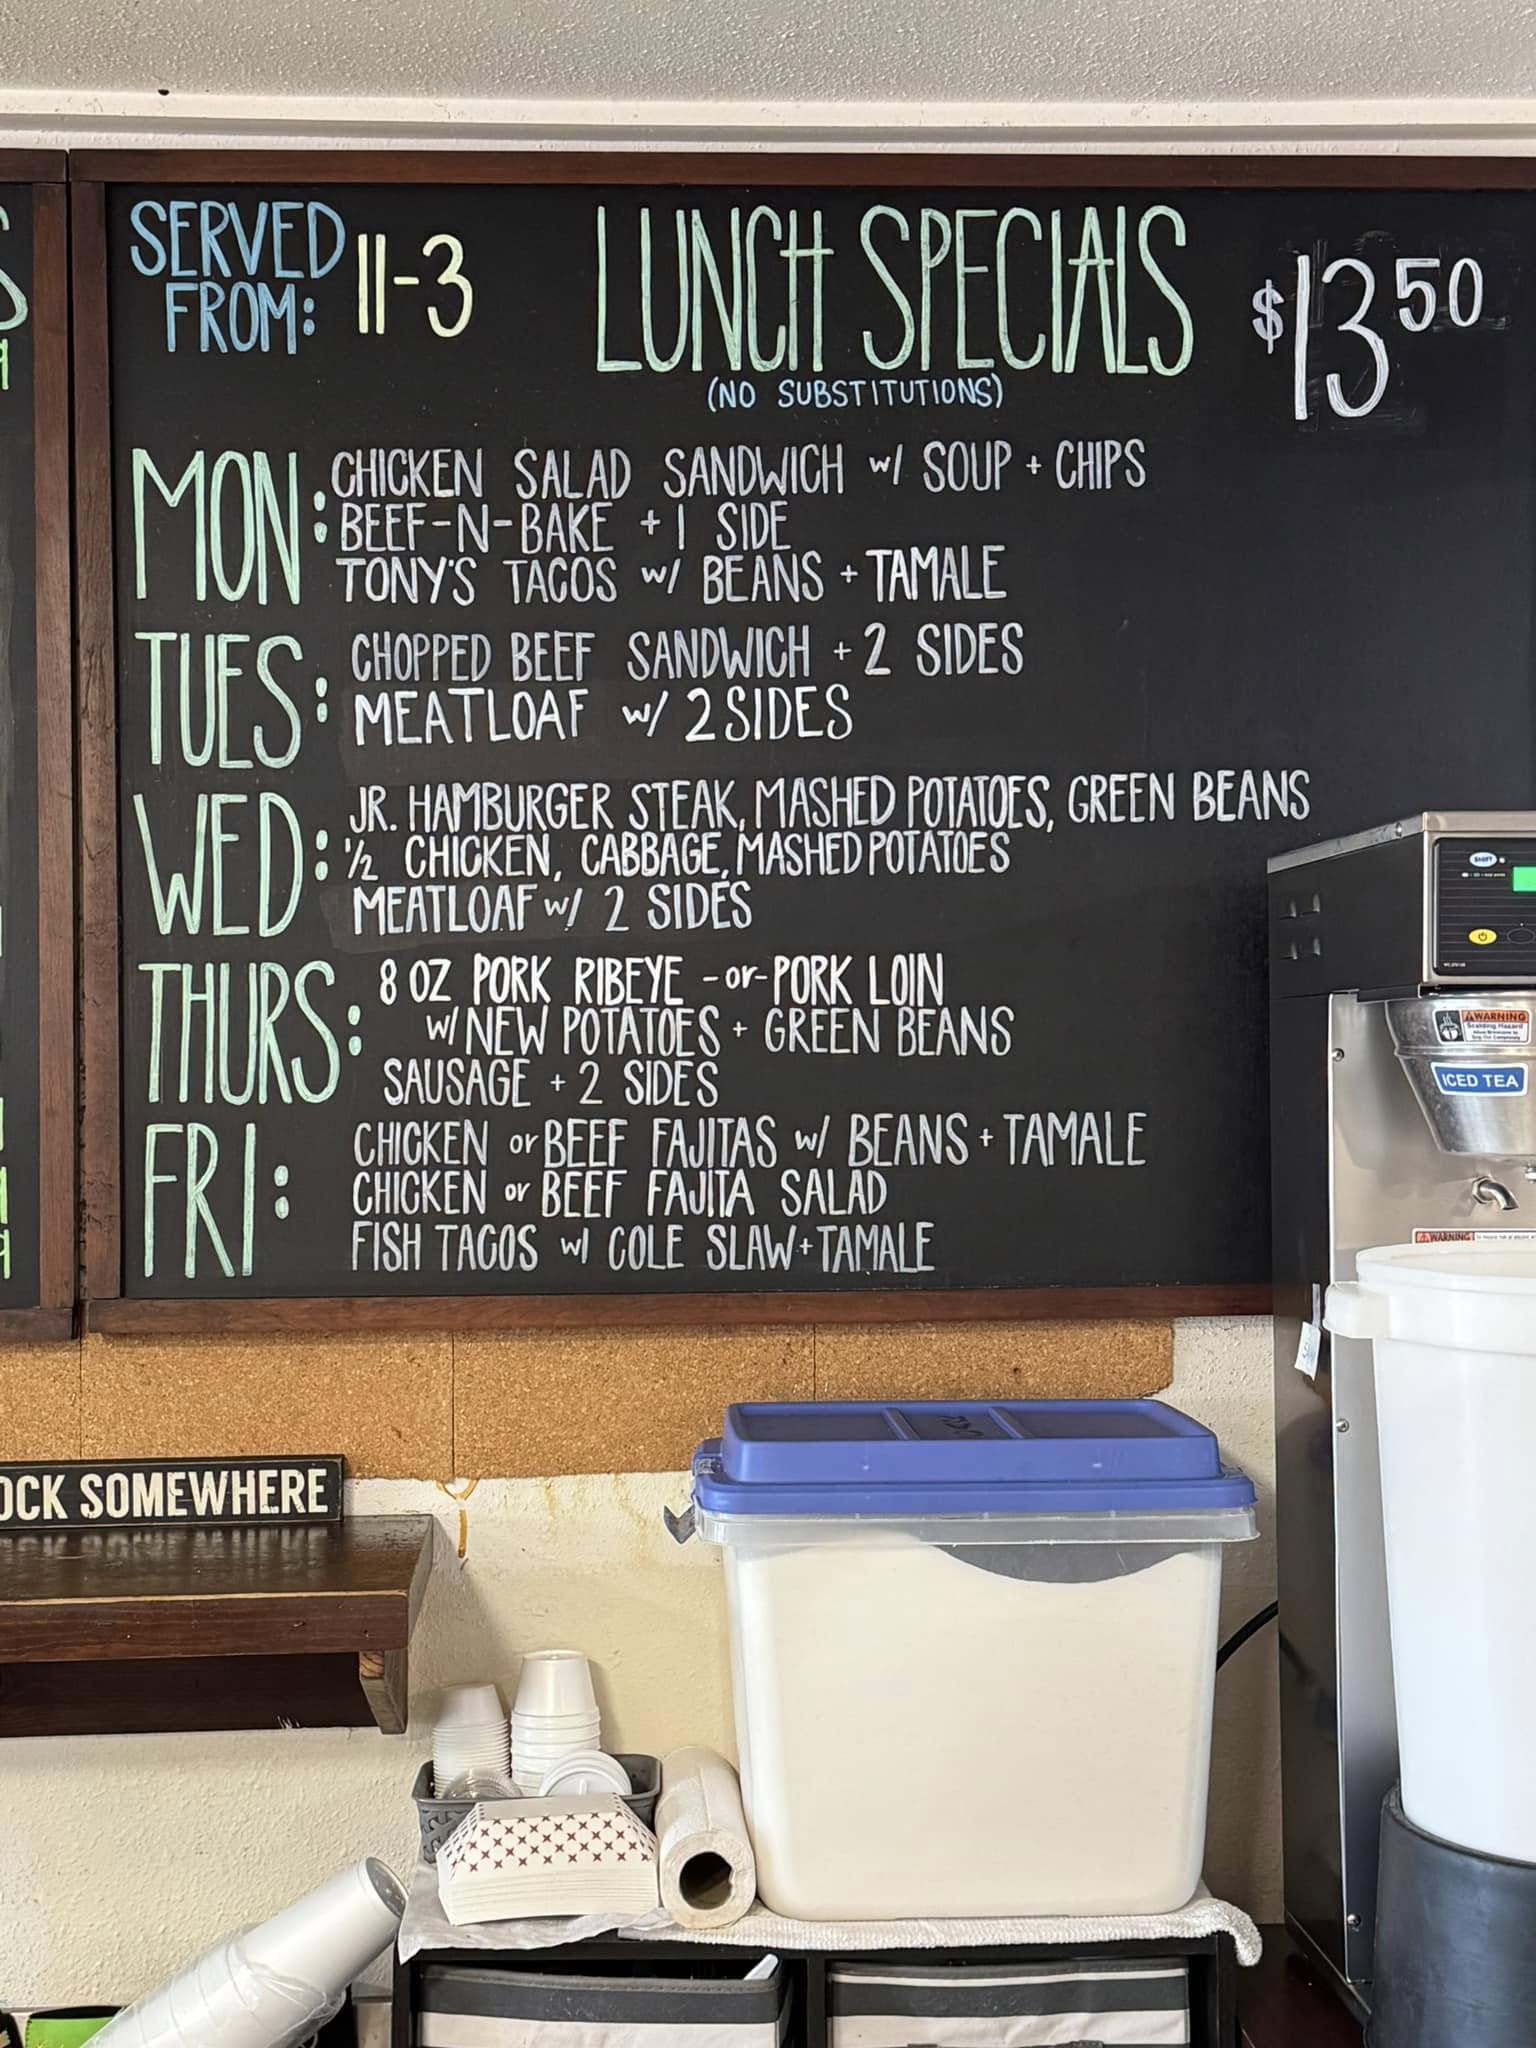 SERVED
FROM: 11-3
LUNCH SPECIALS
(NO SUBSTITUTIONS)
$13 50
MON: CHICKEN SALAD SANDWICH w/ SOUP + CHIPS
BEEF-N-BAKE + 1 SIDE
TONY'S TACOS w/ BEANS + TAMALE
TUES: CHOPPED BEEF SANDWICH + 2 SIDES
MEATLOAF w/ 2 SIDES
WED: JR. HAMBURGER STEAK, MASHED POTATOES, GREEN BEANS
1/2 CHICKEN, CABBAGE, MASHED POTATOES
MEATLOAF w/ 2 SIDES
THURS: 8 OZ PORK RIBEYE -or- PORK LOIN
w/ NEW POTATOES + GREEN BEANS
SAUSAGE + 2 SIDES
FRI: CHICKEN or BEEF FAJITAS w/ BEANS + TAMALE
CHICKEN or BEEF FAJITA SALAD
FISH TACOS w/ COLE SLAW + TAMALE
WARNING
Scalding Hazard
ICED TEA
WARNING
OCK SOMEWHERE